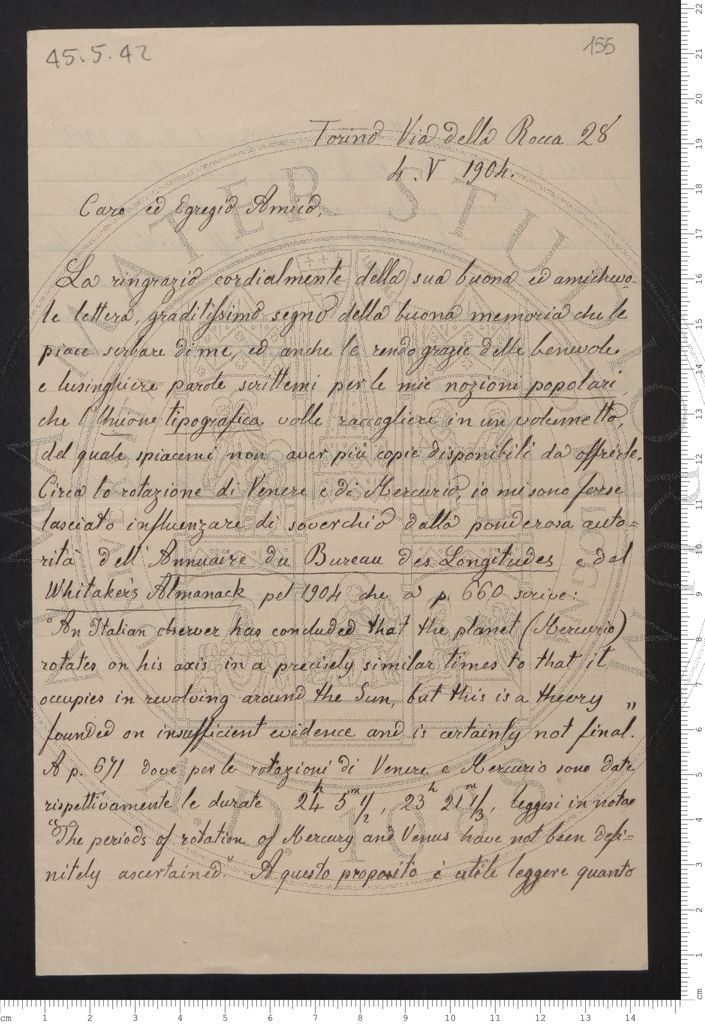 45.5.42
155
Torino Via della Rocca 28
4. V 1904.
Caro ed Egregio Amico,
La ringrazio cordialmente della sua buona ed amichevo-
le lettera, graditissimo segno della buona memoria che le
piace serbare di me, ed anche le rendo grazie delle benevole
e lusinghiere parole scrittemi per le mie nozioni popolari,
che l'Unione tipografica volle raccogliere in un volumetto,
del quale spiacemi non aver più copie disponibili da offrirle.
Circa la rotazione di Venere e di Mercurio, io mi sono forse
lasciato influenzare di soverchio dalla ponderosa auto=
rità dell'Annuaire du Bureau des Longitudes e del
Whitaker's Almanack pel 1904 che a p. 660 scrive:
"An Italian observer has concluded that the planet (Mercurio)
rotates on his axis in a precisely similar times to that it
occupies in revolving around the Sun, but this is a theory
founded on insufficient evidence and is certainly not final."
A p. 671 dove per le rotazioni di Venere e Mercurio sono date
rispettivamente le durate 24h 5m 1/2, 23h 21m 1/3, leggesi in nota
"The periods of rotation of Mercury and Venus have not been defi=
nitely ascertained." A questo proposito è utile leggere quanto
ALMA MATER STUDIORUM
A.D. 1088
cm 1 2 3 4 5 6 7 8 9 10 11 12 13 14
cm 1 2 3 4 5 6 7 8 9 10 11 12 13 14 15 16 17 18 19 20 21 22